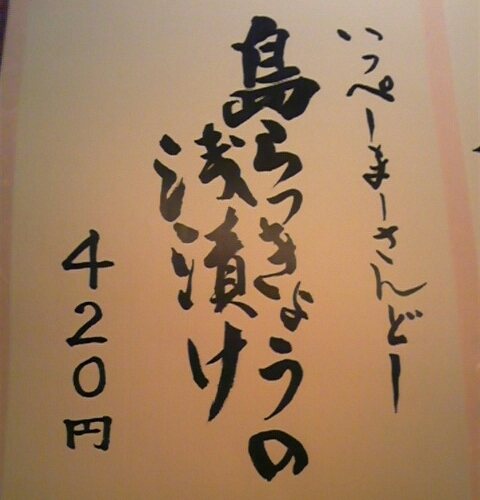 いっぺーまーさんどー
島らっきょうの
浅漬け
420円